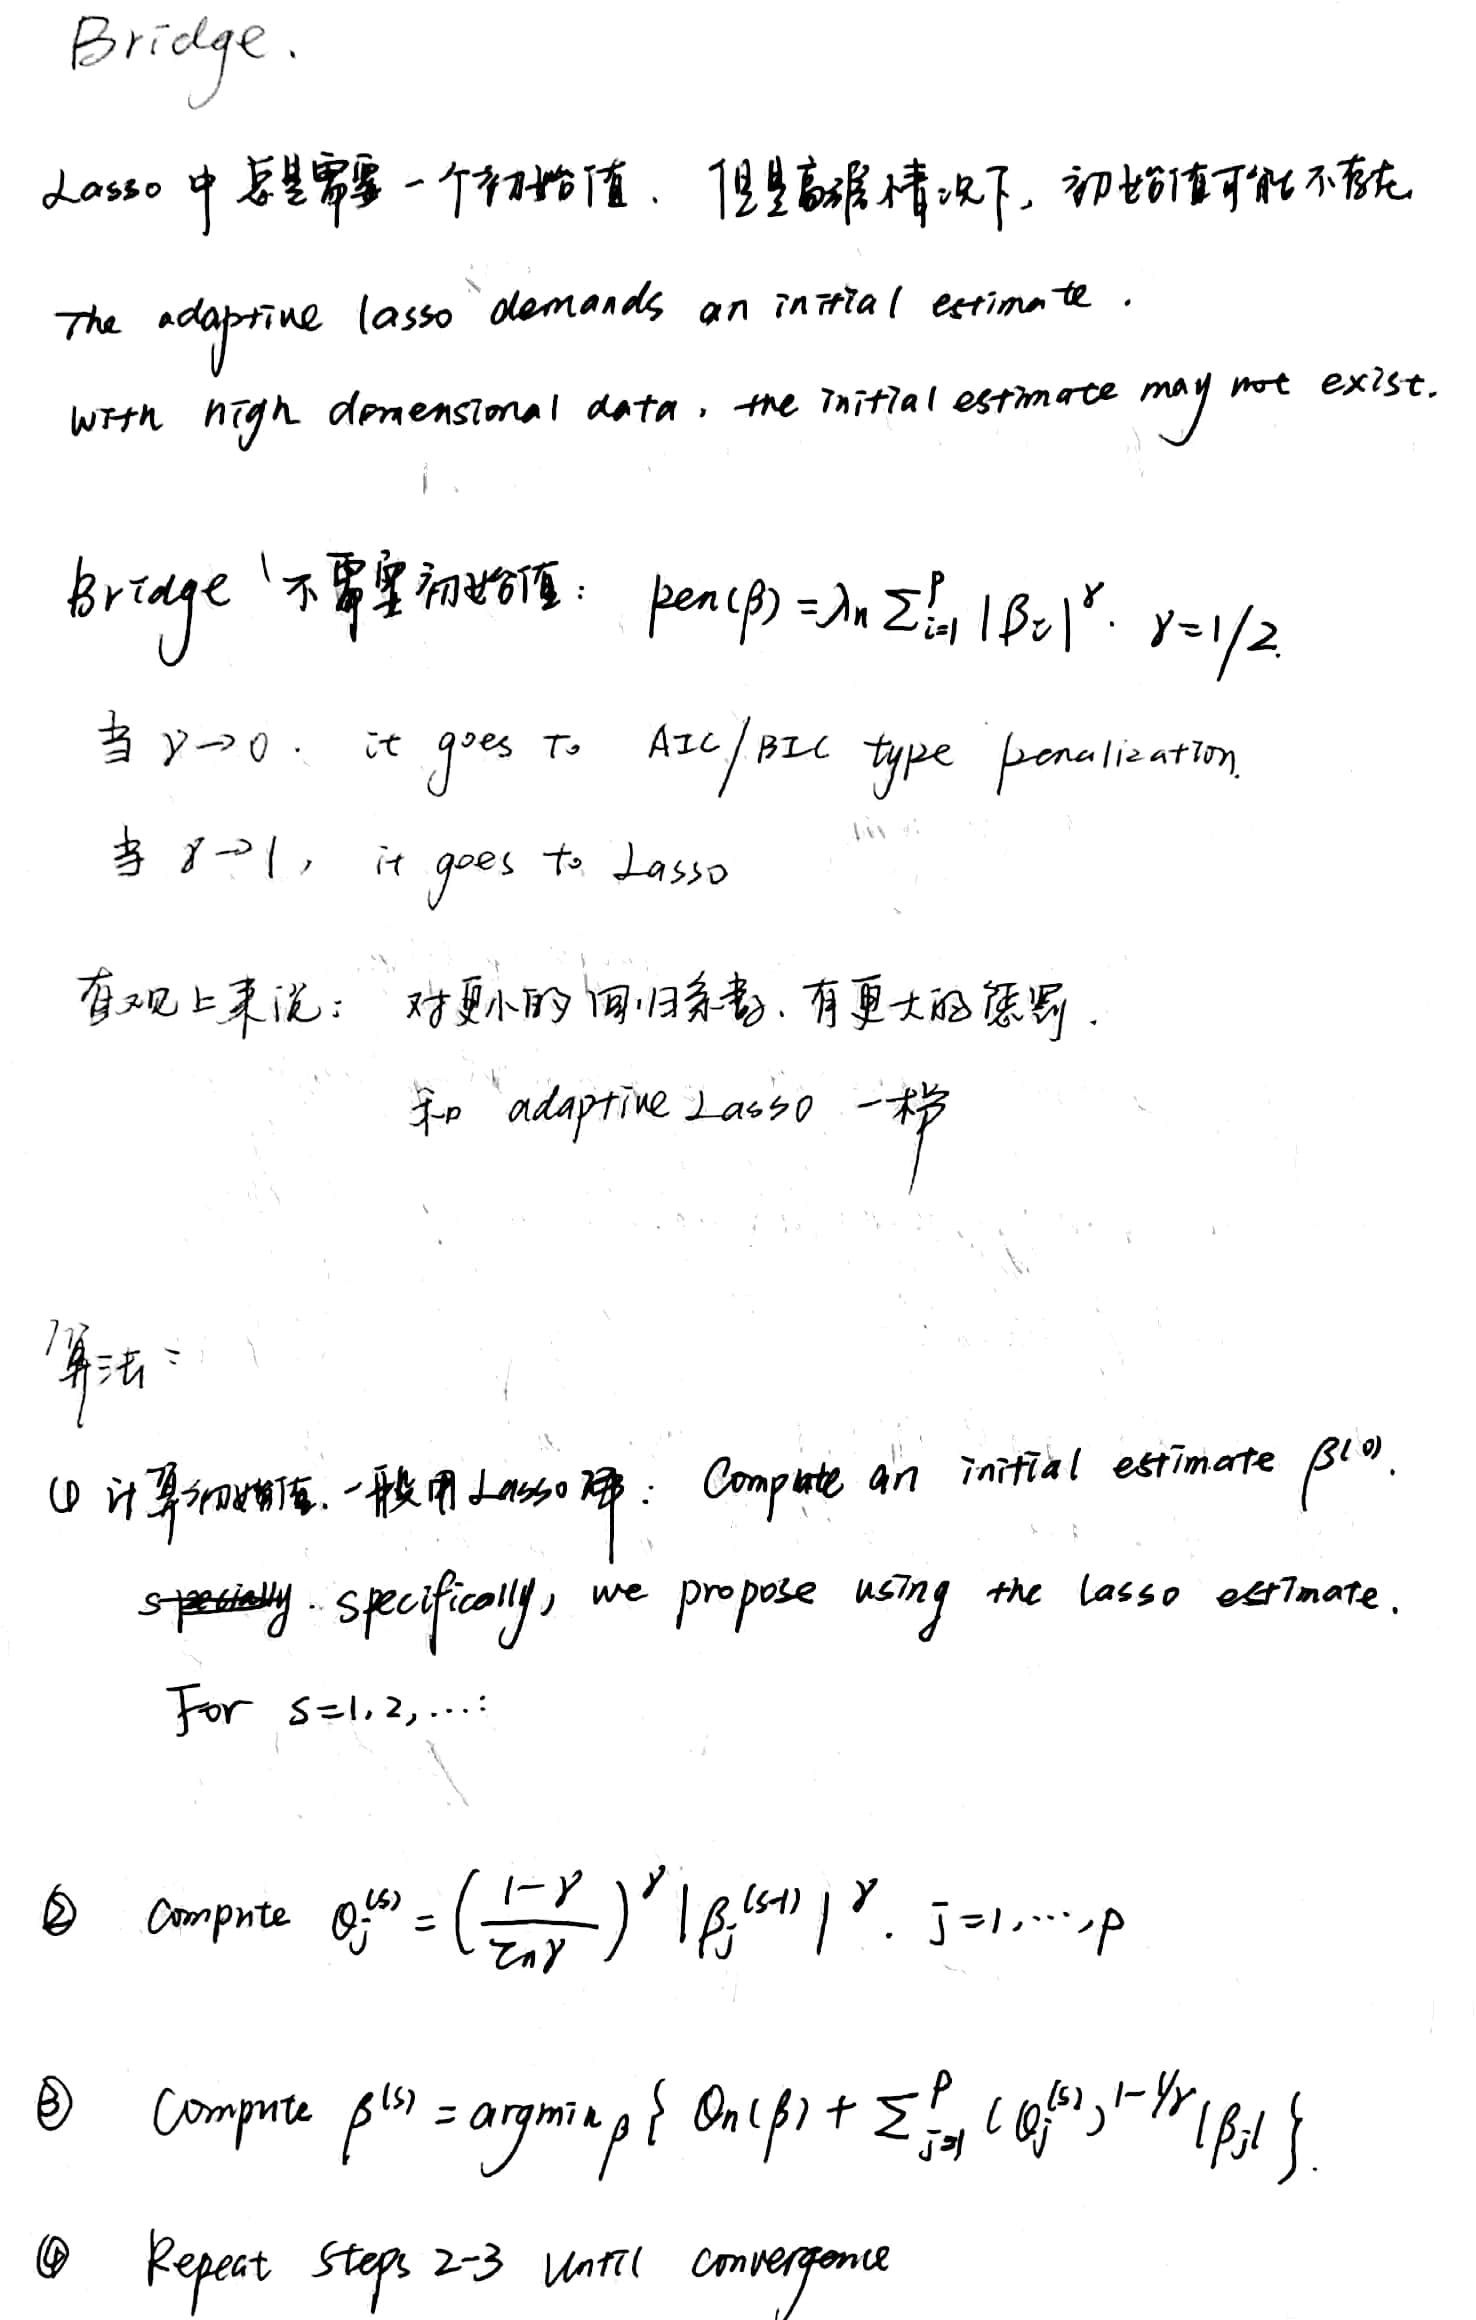 Bridge.
Lasso 中 总是需要一个初始值. 但是高维情况下, 初始值可能不存在.
The adaptive lasso demands an initial estimate.
With high dimensional data, the initial estimate may not exist.
Bridge 不需要初始值: pen(β) = λn Σ_{i=1}^{p} |βi|^γ. γ=1/2.
当 γ→0. it goes to AIC/BIC type penalization.
当 γ→1, it goes to Lasso
直观上来说: 对更小的回归系数, 有更大的惩罚.
和 adaptive Lasso 一样
算法:
① 计算初始值, 一般用 Lasso 解: Compute an initial estimate β^(0).
specially. specifically, we propose using the lasso estimate.
For s=1,2,...:
② Compute θj^(s) = ((1-γ)/(τnγ))^γ |βj^(s-1)|^γ. j=1,...,p
③ Compute β^(s) = argmin_β { Qn(β) + Σ_{j=1}^{p} (θj^(s))^{1-1/γ} |βj| }.
④ Repeat Steps 2-3 Until convergence